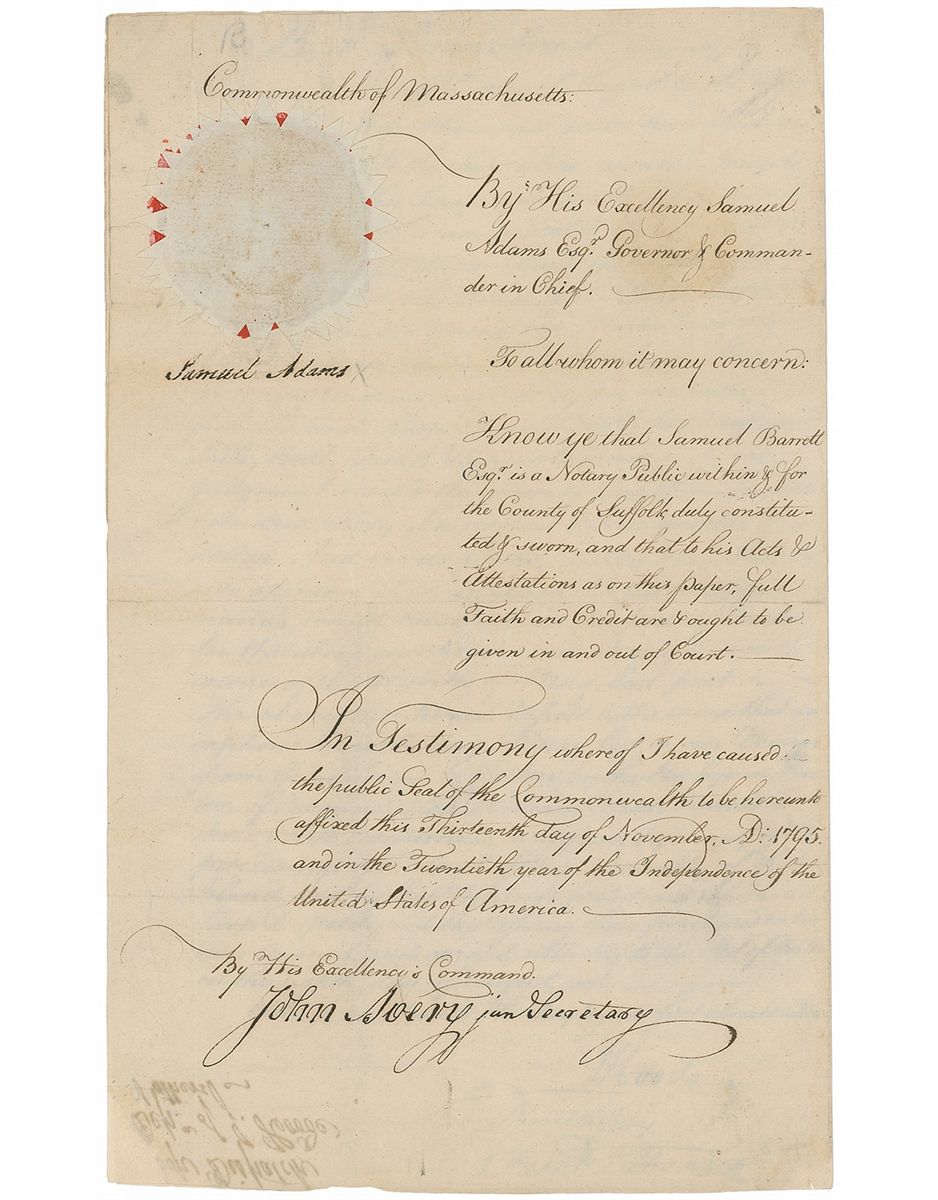 Commonwealth of Massachusetts:
By His Excellency Samuel
Adams Esqr. Governor & Comman-
der in Chief.
Samuel Adams
To all whom it may concern:
Know ye that Samuel Barrett
Esqr. is a Notary Public within & for
the County of Suffolk, duly constitu-
ted & sworn, and that to his Acts &
Attestations as on this paper, full
Faith and Credit are & ought to be
given in and out of Court.
In Testimony whereof I have caused
the public Seal of the Commonwealth to be hereunto
affixed this Thirteenth day of November, AD: 1795.
and in the Twentieth year of the Independence of the
United States of America.
By His Excellency's Command.
John Avery jun Secretary